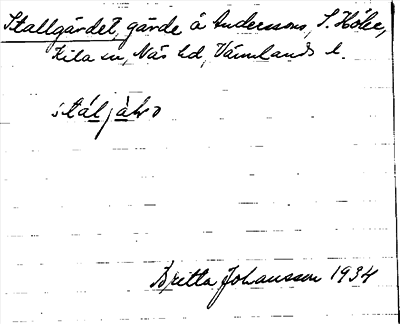 Stallgärdet, gärde å Anderssons, S. Hölje,
Kila sn, Näs hd, Värmlands l.
stáljàḷə
Britta Johansson 1934